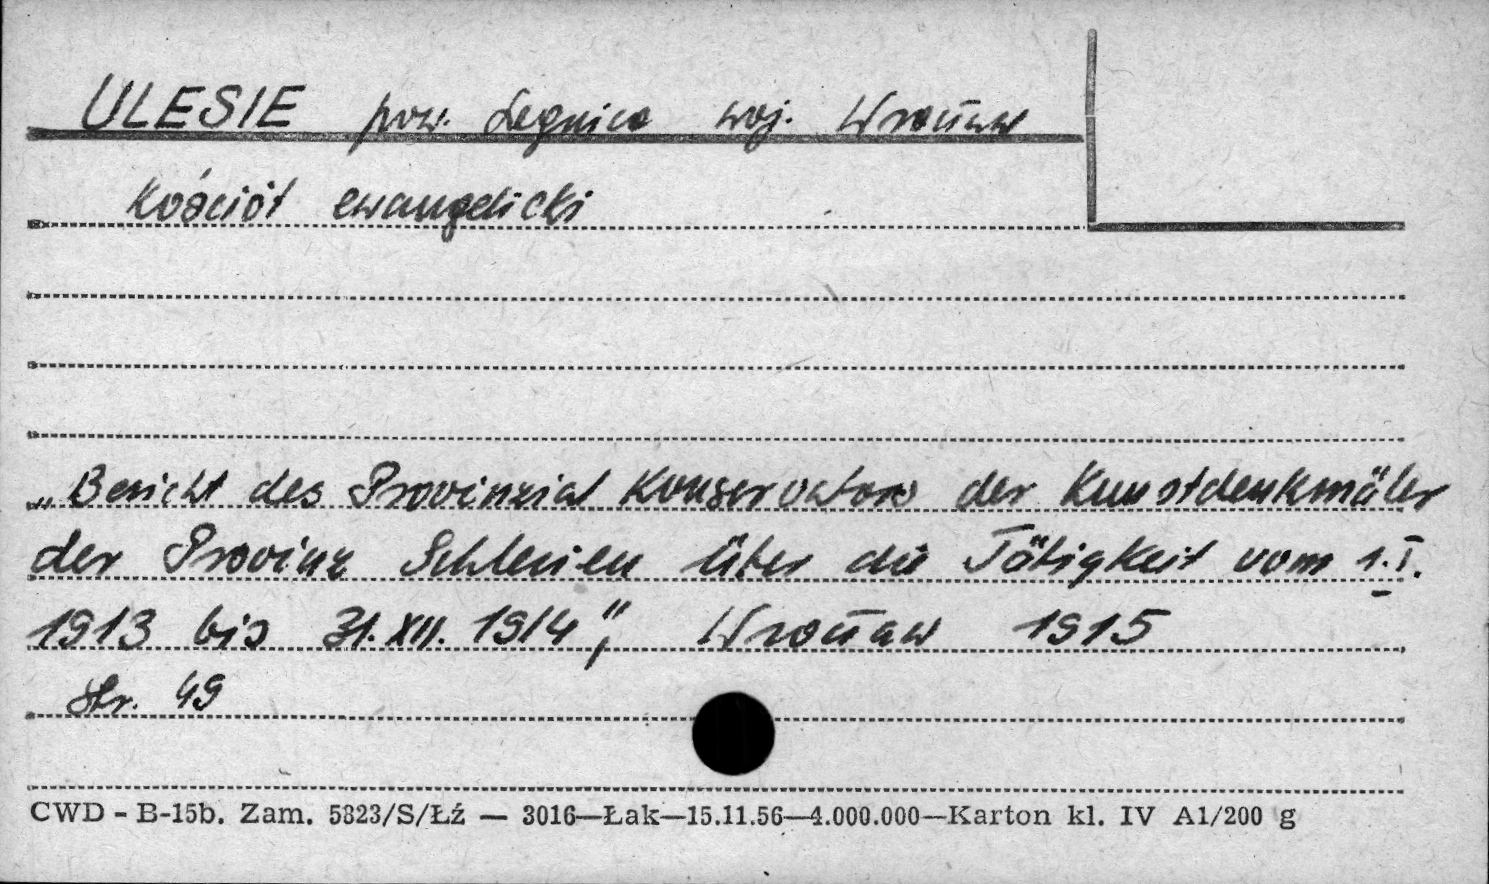 ULESIE pow. Legnica woj. Wrocław
Kościół ewangelicki
„Bericht des Provinzial Konservators der Kunstdenkmäler
der Provinz Schlesien über die Tätigkeit vom 1.I.
1913 bis 31.XII. 1914", Wrocław 1915
str. 49
CWD - B-15b. Zam. 5823/S/Łź — 3016—Łak—15.11.56—4.000.000—Karton kl. IV A1/200 g